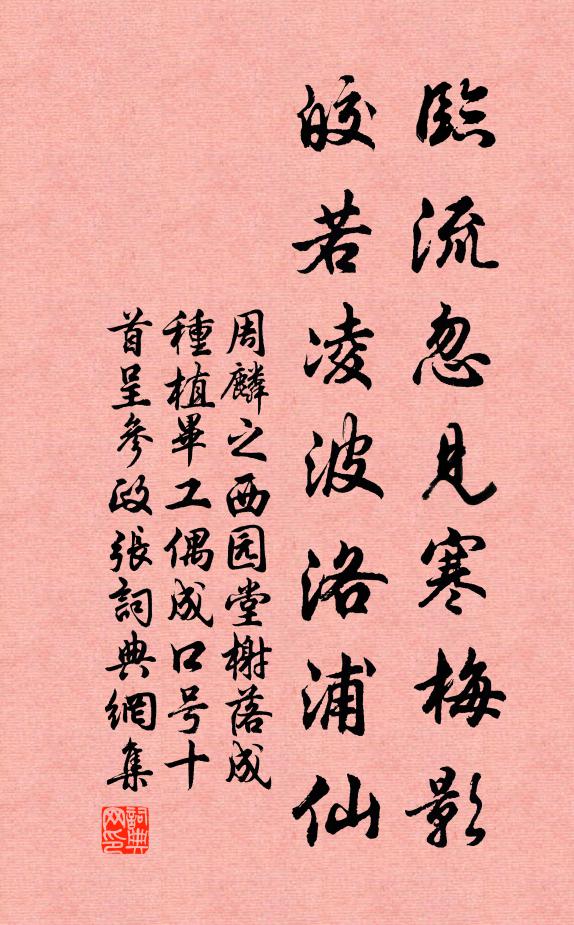 臨流忽見寒梅影
皎若凌波洛浦仙
周麟之西园堂榭落成
種植畢工偶成口号十
首呈參政張詞典網集
詞典网印